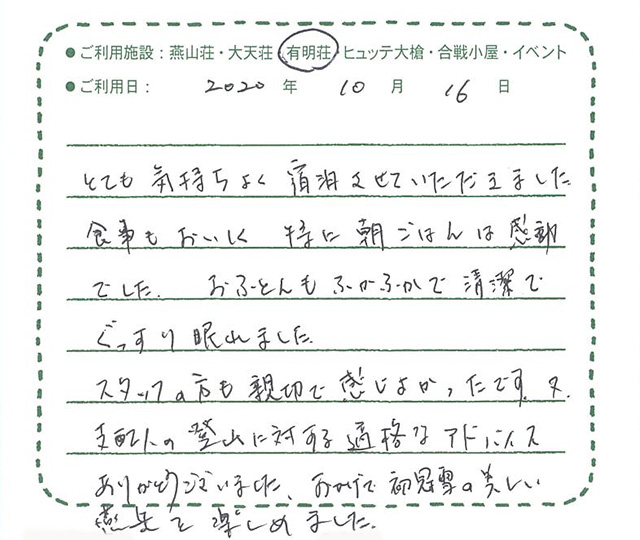 ●ご利用施設：燕山荘・大天荘・有明荘・ヒュッテ大槍・合戦小屋・イベント
●ご利用日： 2020 年 10 月 16 日
とても 気持ちよく 宿泊させていただきました
食事も おいしく 特に 朝ごはんは 感動
でした。 おふとんも ふかふかで 清潔で
ぐっすり 眠れました。
スタッフの方も 親切で 感じよかったです。又、
支配人の 登山に対する 適格な アドバイス
ありがとうございました、おかげで 初冠雪の美しい
燕岳を 楽しめました。